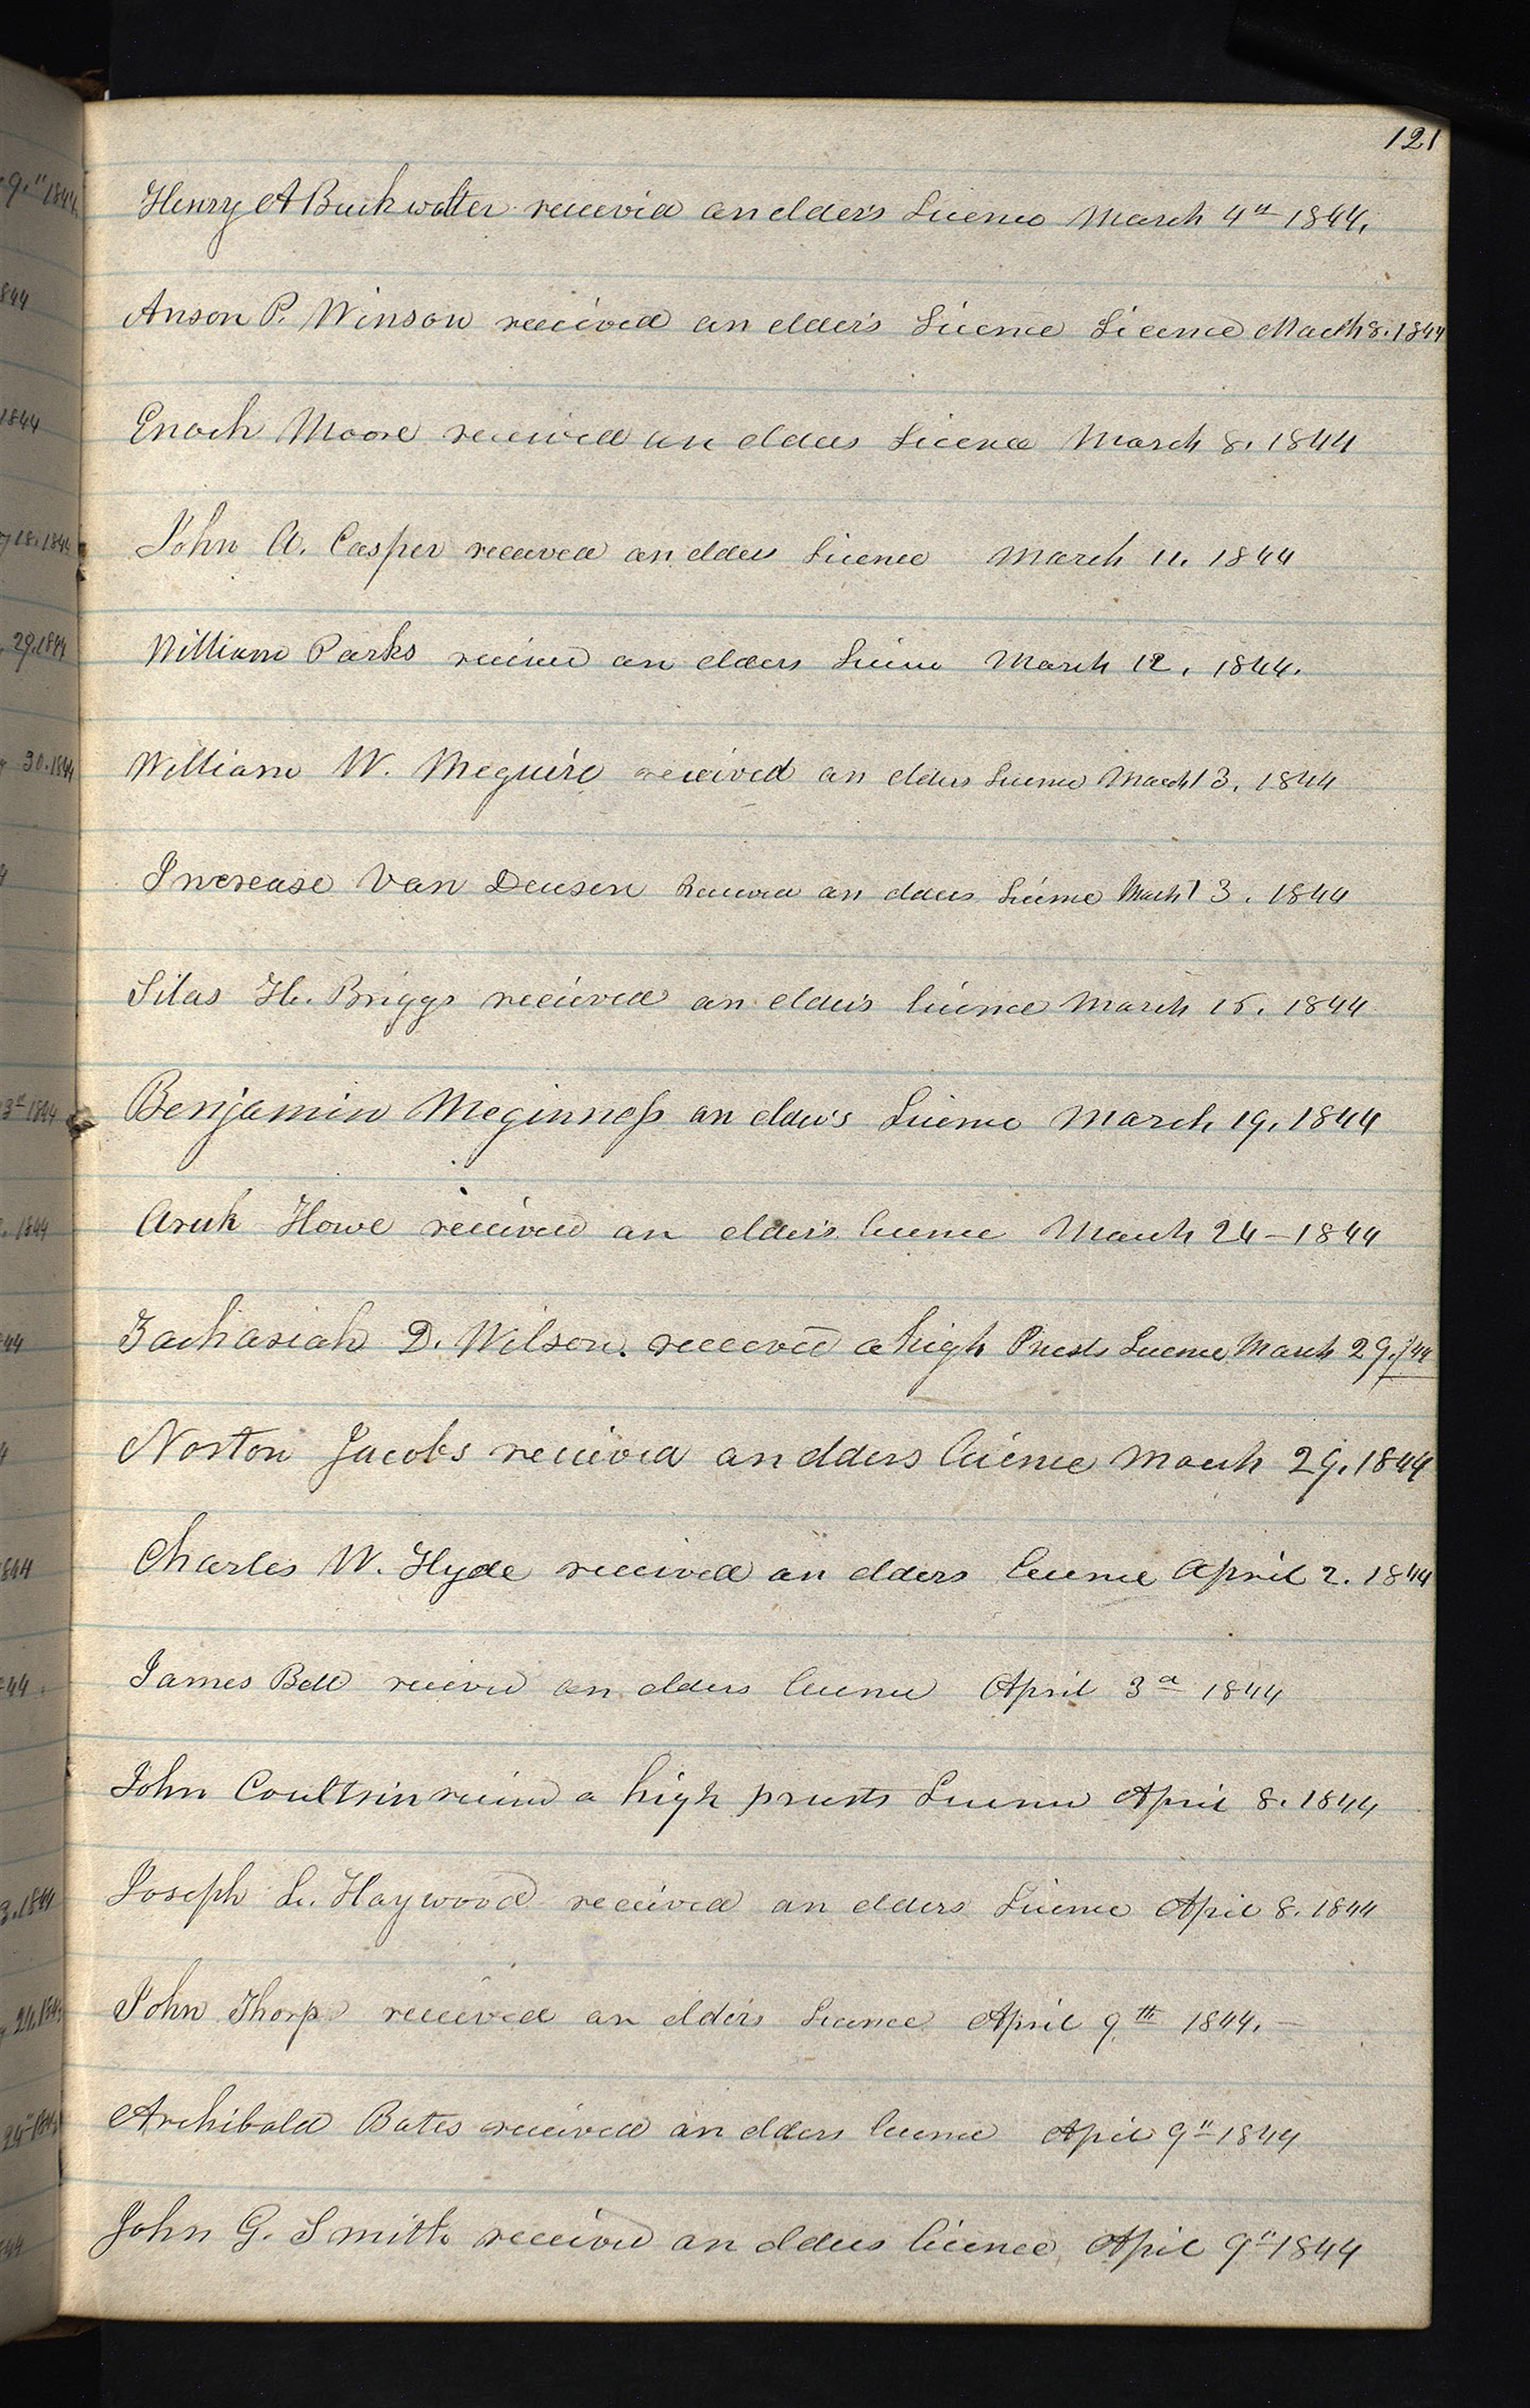 121
Henry A Buckwalter received an elder's Licence March 4th 1844.
Anson P. Winsow received an elder's Licence Licence March 8. 1844
Enoch Moore received an elders Licence March 8. 1844
John A. Casper received an elders Licence March 11. 1844
William Parks received an elders Licence March 12. 1844.
William W. Meguire received an elders Licence March 13. 1844
Increase Van Deusen Received an elders Licence March 13. 1844
Silas H. Briggs recieved an elder's licence March 15. 1844
Benjamin Meginness an elder's Licence March 19. 1844
Howe received an elder's licence March 24 – 1844
Zachariah D. Wilson. received a high Priests Licence March 29. /44
Norton Jacobs recieved an elders licence March 29. 1844
Charles W. Hyde received an elders licence April 2. 1844
James Bell received an elders licence April 3d 1844
John Coultrin received a high priests Licence April 8. 1844
Joseph L. Haywood received an elders Licence April 8. 1844
John Thorp received an elders Licence April 9th 1844. –
Archibald Bates received an elders licence April 9" 1844
John G. Smith received an elders licence April 9" 1844
9." 1844
844
1844
18. 1844
29. 1844
30. 1844
3d 1844
. 1844
44
844
44.
3. 1844